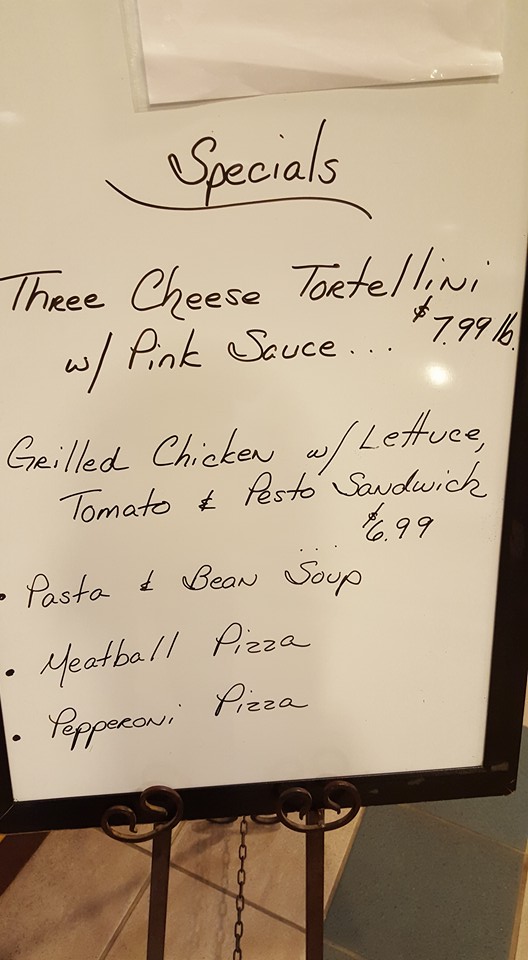 Specials
Three Cheese Tortellini
w/ Pink Sauce... $7.99 lb.
Grilled Chicken w/ Lettuce,
Tomato & Pesto Sandwich
... $6.99
• Pasta & Bean Soup
• Meatball Pizza
• Pepperoni Pizza